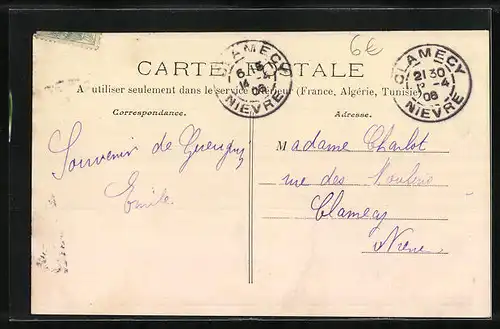 6€
CLAMECY
5 15
14 -4
06
NIEVRE
CLAMECY
21 30
-4
06
NIEVRE
CARTE POSTALE
A utiliser seulement dans le service intérieur (France, Algérie, Tunisie)
Correspondance.
Adresse.
Souvenir de
Emile
Madame Charlot
rue des
Clamecy
Nièvre